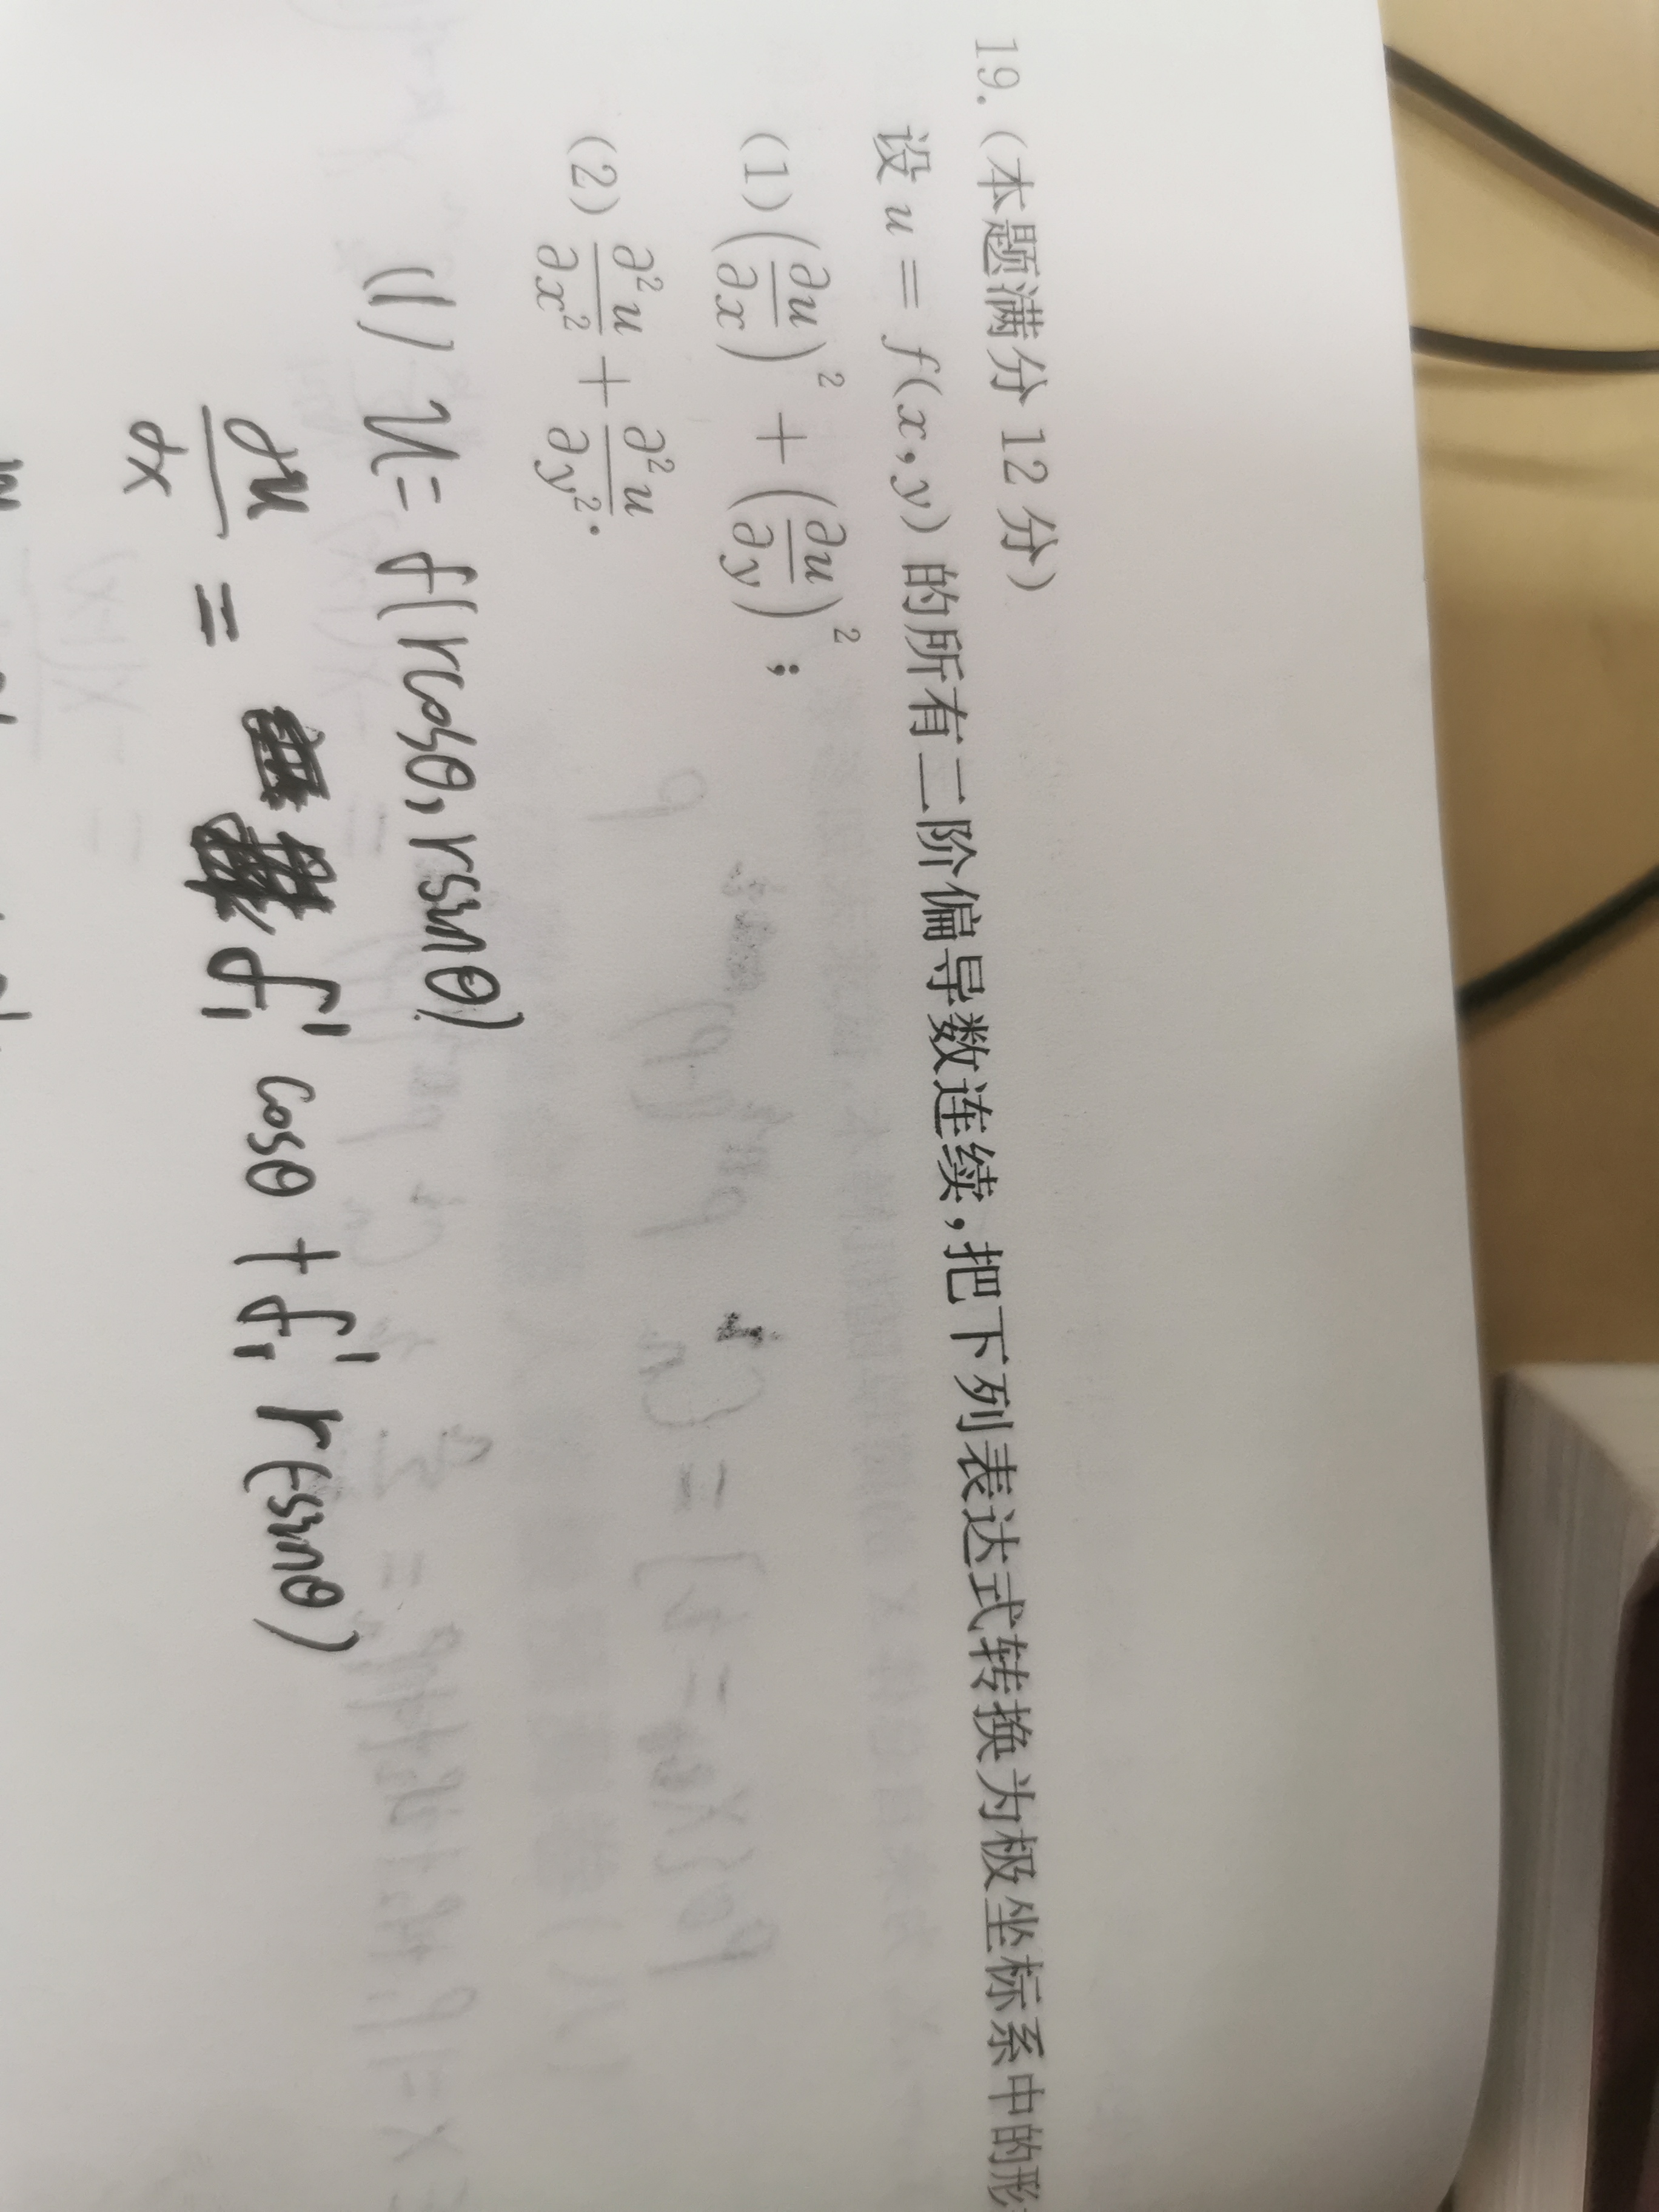 19. (本题满分 12 分)
设 u = f(x,y) 的所有二阶偏导数连续,把下列表达式转换为极坐标系中的形
(1) (∂u/∂x)² + (∂u/∂y)²;
(2) ∂²u/∂x² + ∂²u/∂y².
(1) u = f(rcosθ, rsinθ)
∂u/∂x = f₁' cosθ + f₁' r(-sinθ)